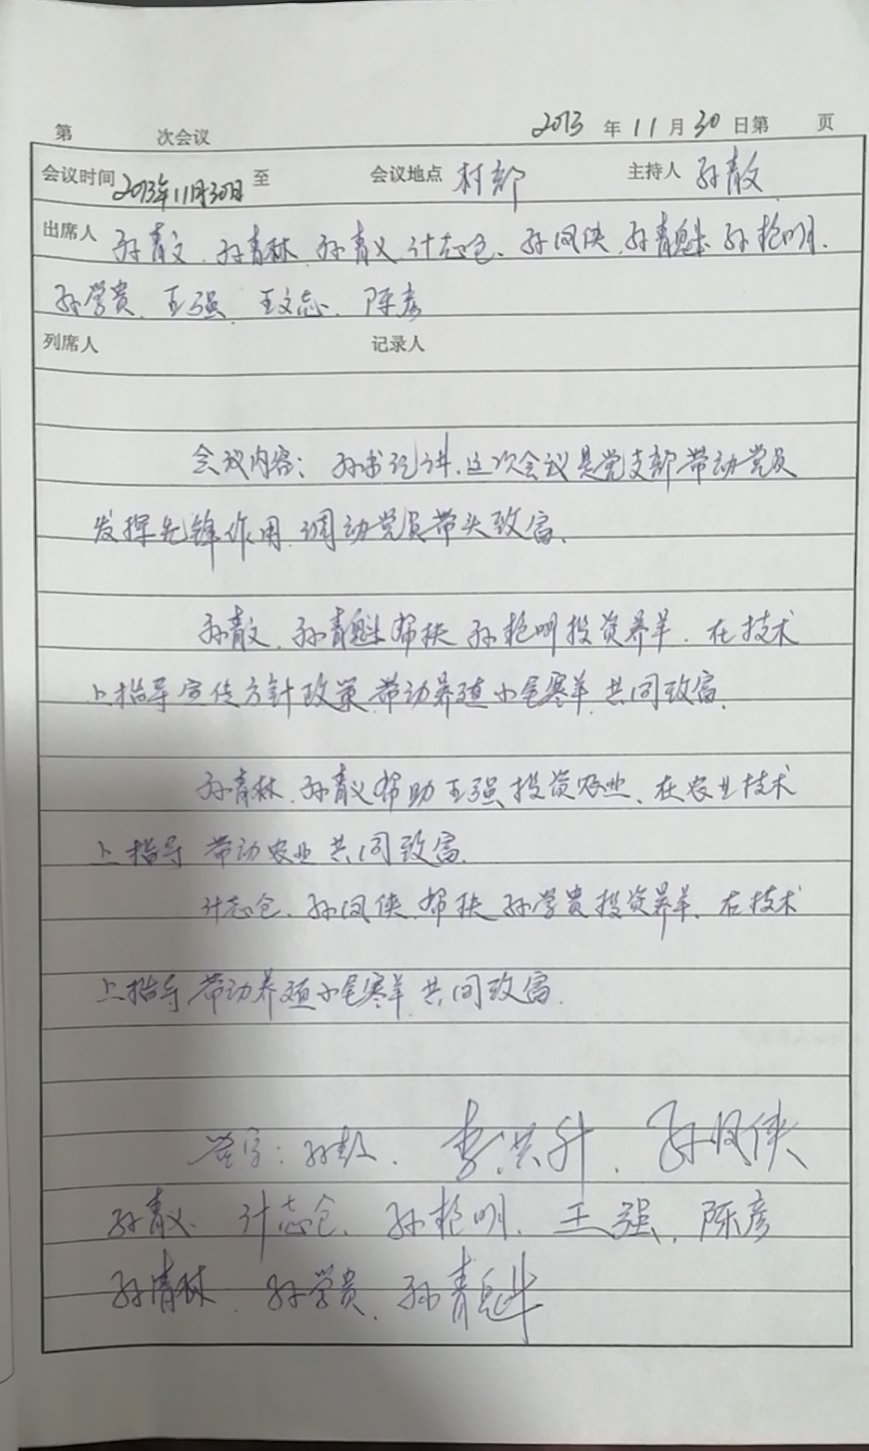 第 次会议 2013 年 11 月 30 日第 页
会议时间 2013年11月30日 至 会议地点 村部 主持人 孙青文
出席人 孙青文、孙青林、孙青义、计志仓、孙凤侠、孙青魁、孙艳明、
孙学贵、王强、王文志、陈彦
列席人 记录人
会议内容：孙书记讲，这次会议是党支部带动党员
发挥先锋作用、调动党员带头致富、
孙青文、孙青魁帮扶孙艳明投资养羊、在技术
上指导宣传方针政策，带动养殖小尾寒羊，共同致富、
孙青林、孙青义帮助王强投资农业、在农业技术
上指导 带动农业共同致富、
计志仓、孙凤侠、帮扶孙学贵投资养羊、在技术
上指导，带动养殖小尾寒羊，共同致富、
签字：孙青文、李洪升、孙凤侠
孙青义、计志仓、孙艳明、王强、陈彦
孙青林、孙学贵、孙青魁